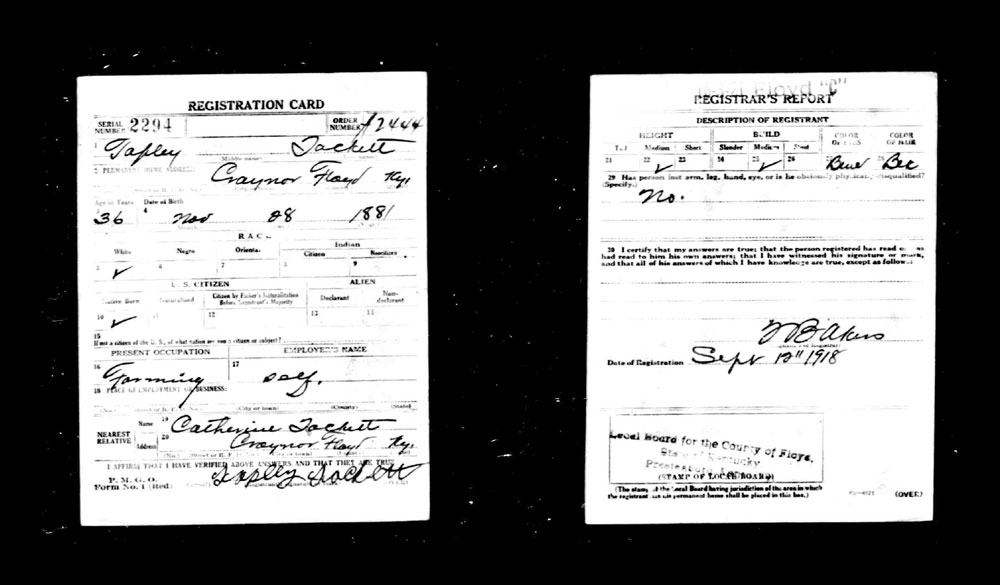 REGISTRATION CARD
SERIAL NUMBER 2294 ORDER NUMBER 12444
1 Tapley Tackett
2 PERMANENT HOME ADDRESS:
Craynor Floyd Ky.
Age in Years Date of Birth
36 4 Nov 28 1881
RACE
White Negro Oriental Indian
Citizen Noncitizen
5 ✓ 6 7 8 9
U. S. CITIZEN ALIEN
Native Born Naturalized Citizen by Father's Naturalization Before Registrant's Majority Declarant Non-declarant
10 ✓ 11 12 13 14
15
If not a citizen of the U. S., of what nation are you a citizen or subject?
PRESENT OCCUPATION EMPLOYER'S NAME
16 Farming 17 self.
18 PLACE OF EMPLOYMENT OR BUSINESS:
(No.) (Street or R. F. D. No.) (City or town) (County) (State)
NEAREST RELATIVE Name 19 Catherine Tackett
Address 20 Craynor Floyd Ky.
(No.) (Street or R. F. D. No.) (City or town)
I AFFIRM THAT I HAVE VERIFIED ABOVE ANSWERS AND THAT THEY ARE TRUE
P. M. G. O.
Form No. 1 (Red) Tapley Tackett
Floyd "C"
REGISTRAR'S REPORT
DESCRIPTION OF REGISTRANT
HEIGHT BUILD COLOR OF EYES COLOR OF HAIR
Tall Medium Short Slender Medium Stout
21 22 ✓ 23 24 25 ✓ 26
29 Has person lost arm, leg, hand, eye, or is he obviously physically disqualified?
(Specify.)
No.
30 I certify that my answers are true; that the person registered has read or has
had read to him his own answers; that I have witnessed his signature or mark,
and that all of his answers of which I have knowledge are true, except as follows:
Akers
Date of Registration Sept 12" 1918
Local Board for the County of Floyd,
State of Kentucky
Prestonsburg
(STAMP OF LOCAL BOARD)
(The stamp of the Local Board having jurisdiction of the area in which
the registrant has his permanent home shall be placed in this box.)
(OVER)